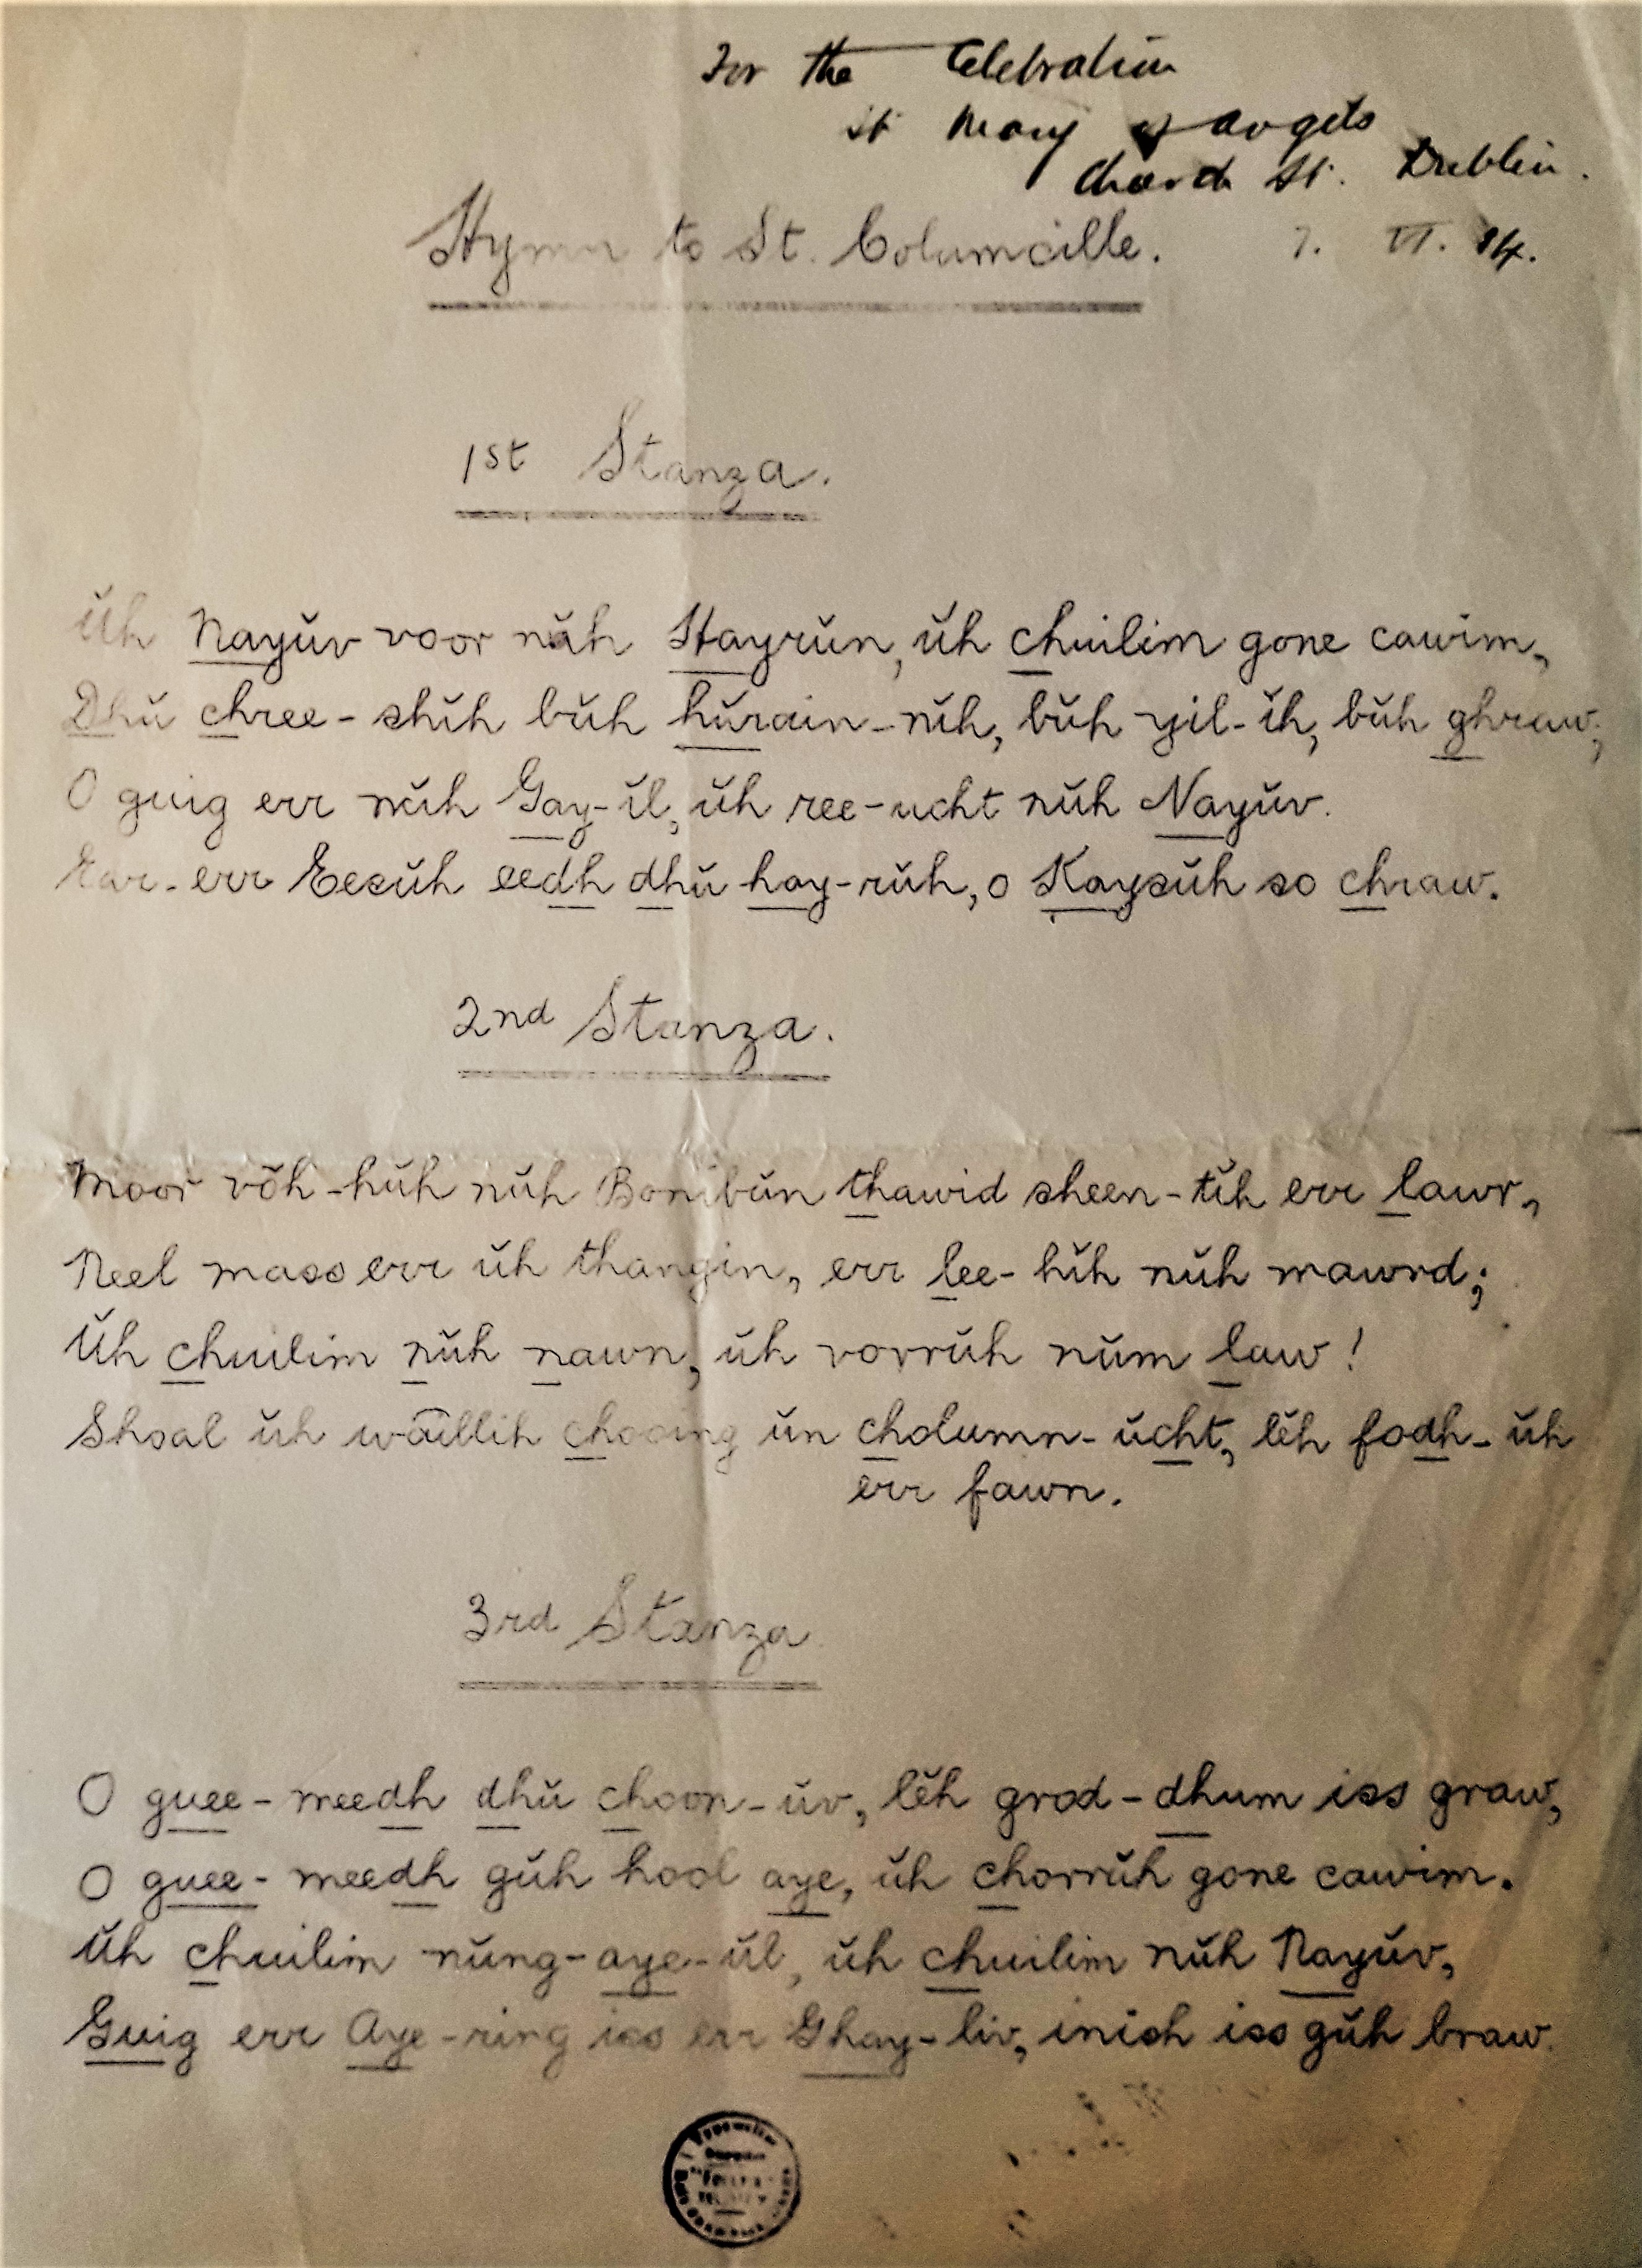 For the Celebration
St Mary of Angels
Church St. Dublin.
Hymn to St. Columcille. 7. VI. 14.
1st Stanza.
Ŭh Nayŭv voor năh Hayrŭn, ŭh chuilim gone cawim,
Dhŭ chree-shĭh bŭh hŭrain-nĭh, bŭh yil-ĭh, bŭh ghraw;
O guig err nŭh Gay-ĭl, ŭh ree-ucht nŭh Nayŭv.
Ear-err Eesŭh eedh dhŭ hay-rŭh, o Kaysŭh so chraw.
2nd Stanza.
Moor vŏh-hŭh nŭh Bonibŭn thawid sheen-tĭh err lawr,
Neel mass err ŭh thangin, err lee-hĭh nŭh mawrd;
Ŭh chuilim nŭh nawn, ŭh vorrŭh nŭm law!
Shoal ŭh waillih chooing ŭn cholumn-ŭcht, lĕh fodh-ŭh
err fawn.
3rd Stanza
O guee-meedh dhŭ choon-ŭv, lĕh grod-dhum iss graw,
O guee-meedh gŭh hool aye, ŭh chorrŭh gone cawim.
Ŭh chuilim nŭng-aye-ŭl, ŭh chuilim nŭh Nayŭv,
Guig err Aye-ring iss err Ghay-liv, inish iss gŭh braw.